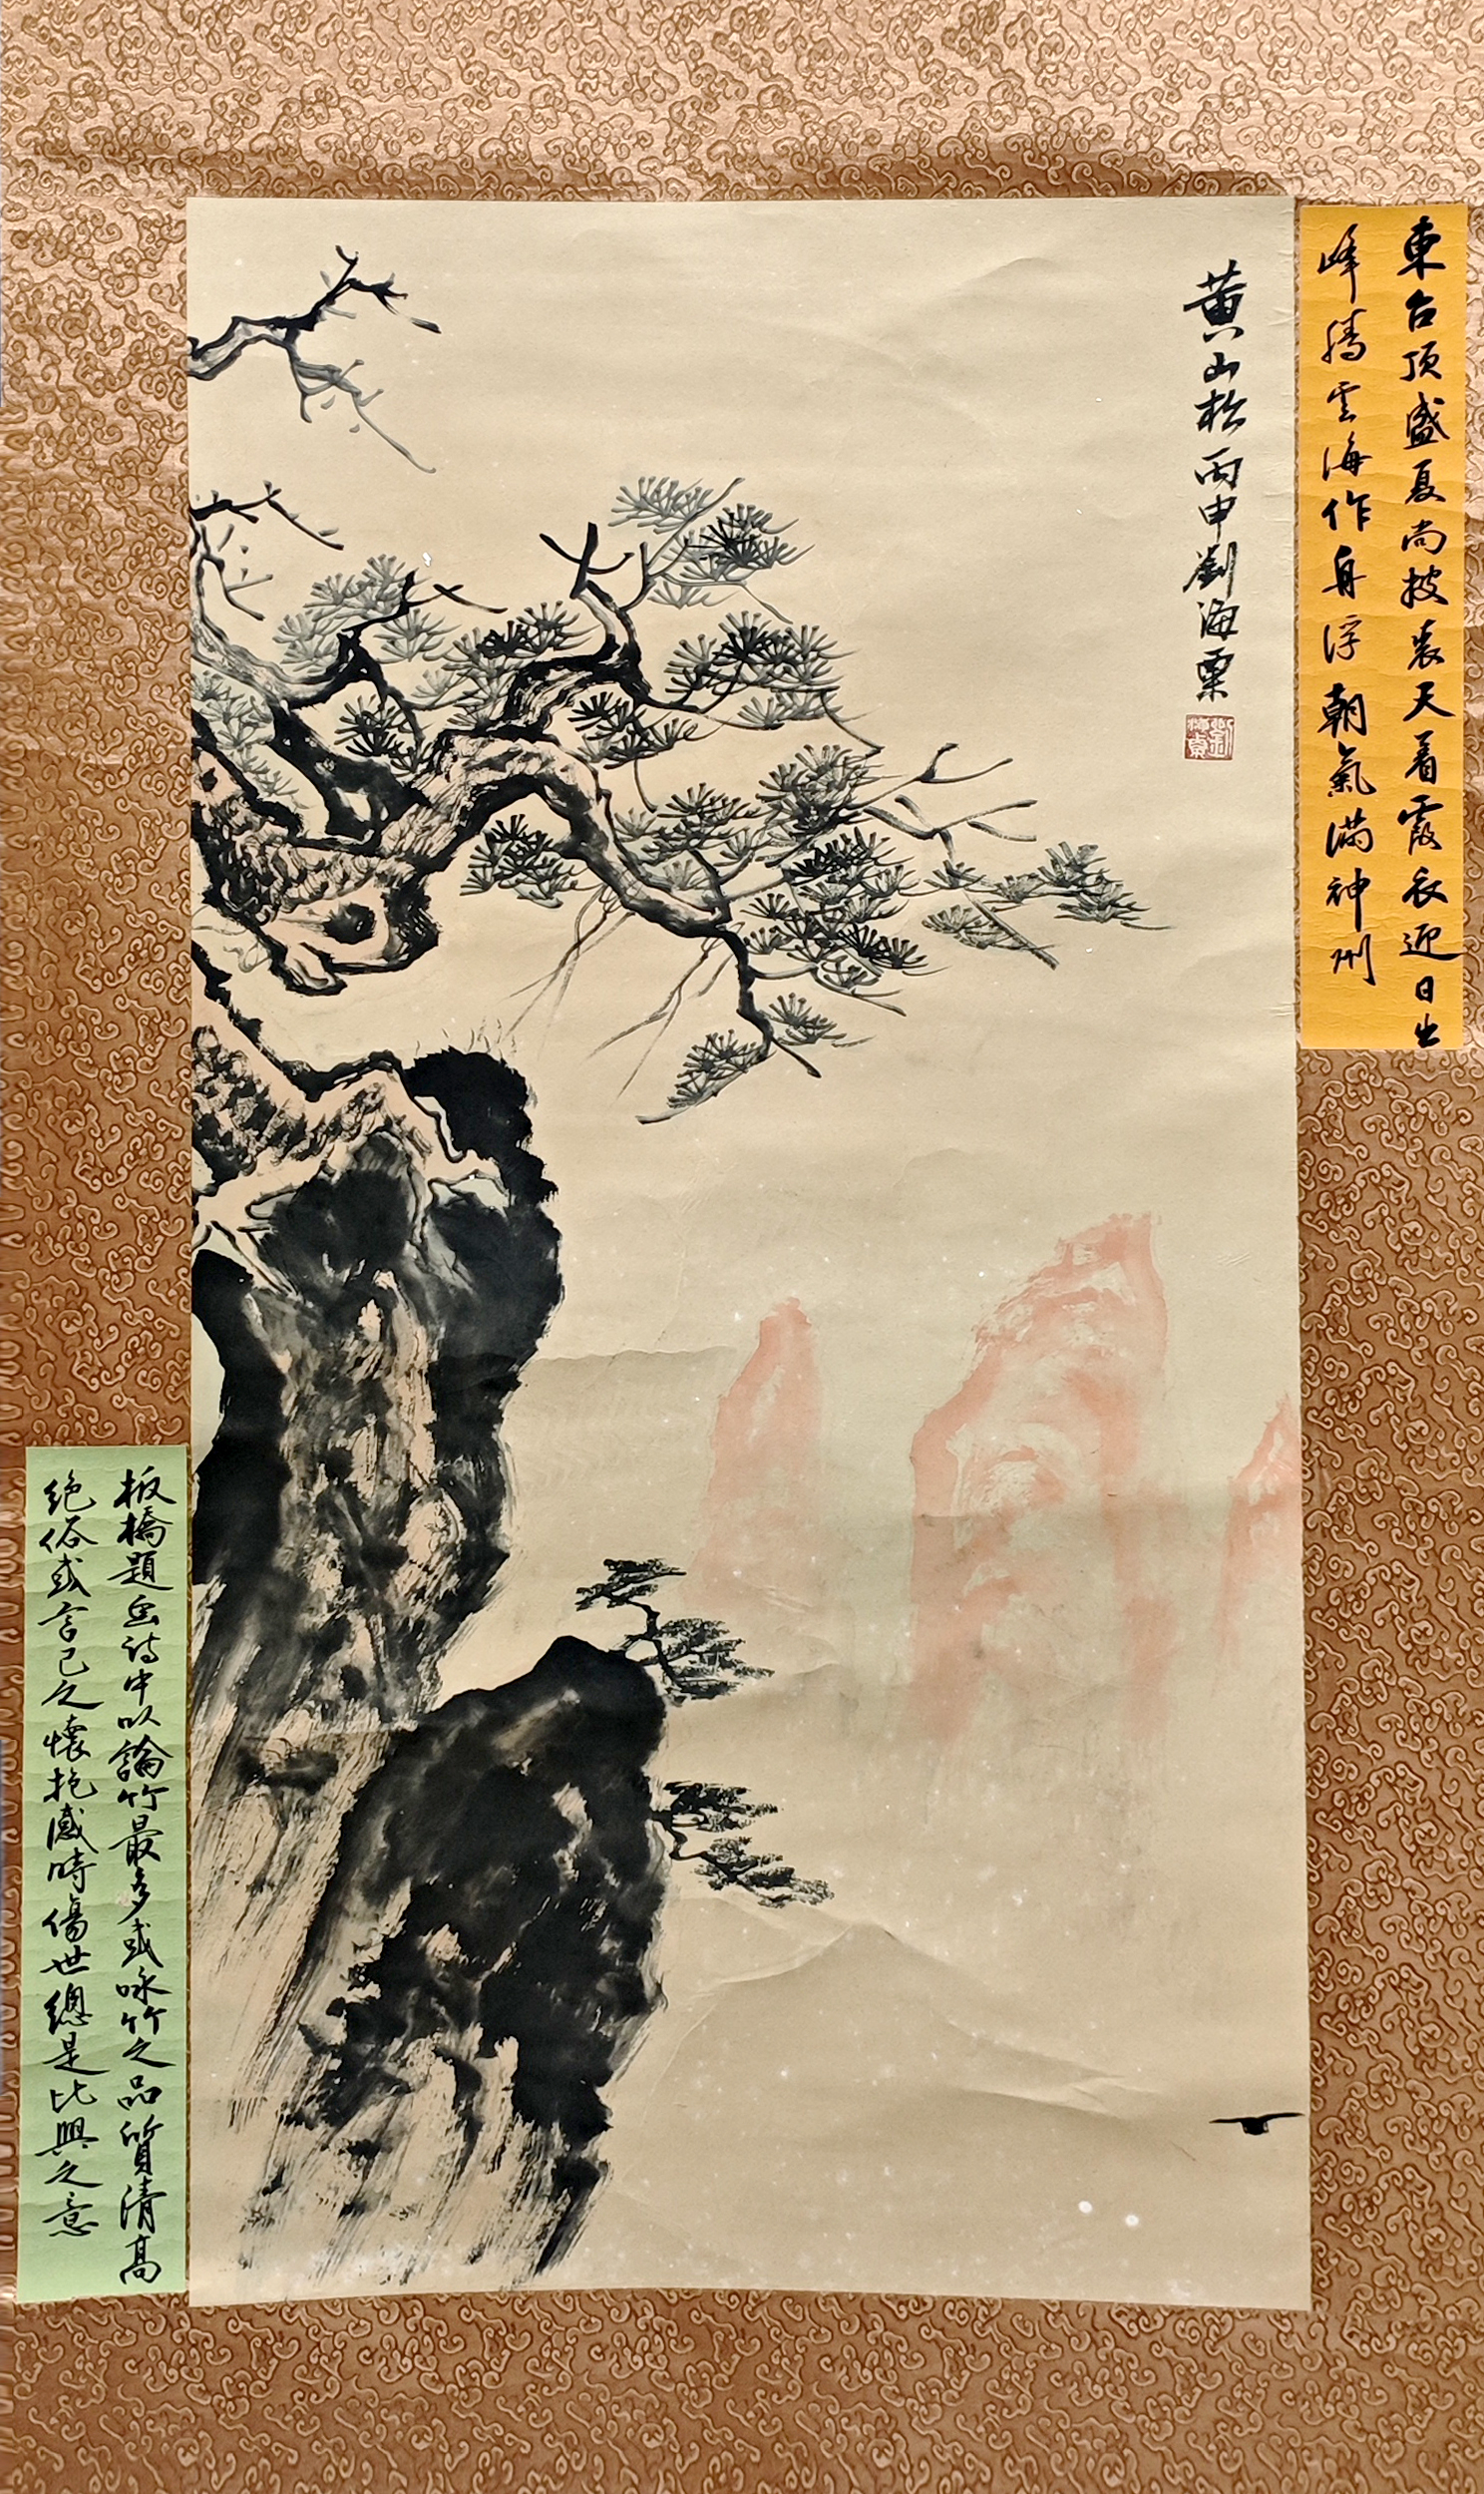 黄山松丙申劉海粟
劉海粟
東台顶盛夏尚披裘天着霞衣迎日出
峰腾雲海作舟浮朝氣满神州
板橋題画诗中以論竹最多或咏竹之品質清高
絶俗或言己之懷抱感時傷世總是比興之意